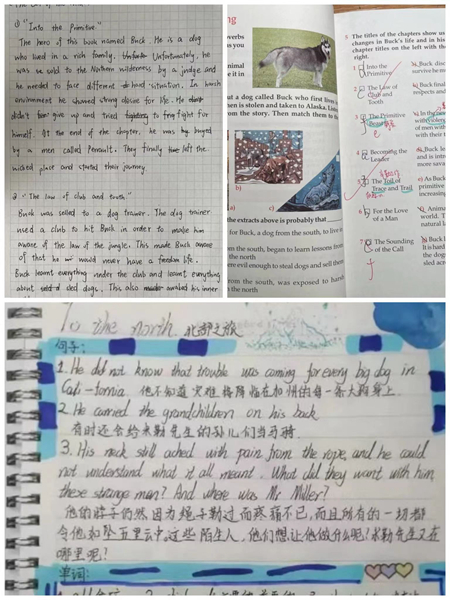 ① "Into the Primitive"
The hero of this book named Buck. He is a dog
who lived in a rich family. Unfortunately, he
was sold to the Northern wilderness by a judge and
he needed to face different hard situation. In harsh
environment he showed strong desire for life. He
didn't give up and tried to fight for
himself. At the end of the chapter, he was buyed
by a men called Perrault. They finally left the
wicked place and started their journey.
② "The law of club and tooth"
Buck was selled to a dog trainer. The dog trainer
used a club to hit Buck in order to make him
aware of the law of the jungle. This made Buck aware
of that he would never have a freedom life.
Buck learnt everything under the club and learnt everything
about sled dogs. This also awaked his inner
ng
overbs
s you
nimal
e it in
ut a dog called Buck who first lives
en is stolen and taken to Alaska. Lin
rom the story. Then match them to
b)
a)
c)
the extracts above is probably that
for Buck, a dog from the south, to live i
om the south, began to learn lessons fro
the north
ere evil enough to steal dogs and sell the
om the south, was exposed to harsh
n the north
5 The titles of the chapters show us
changes in Buck's life and in his
chapter titles on the left with the
right.
1 Into the
Primitive
2 The Law of
Club and
Tooth
3 The Primitive
4 Becoming the
Leader
5 The Toil of
Trace and Trail
6 For the Love
of a Man
7 The Sounding
of the Call
To the north 北部之旅
句子:
1. He did not know that trouble was coming for every big dog in
Cali-fornia. 他不知道灾难将降临在加州的每一条大狗身上.
2. He carried the grandchildren on his back
有时还会给米勒先生的孙儿们当马骑.
3. His neck still ached with pain from the rope, and he could
not understand what it all meant. What did they want with him
these strange man? And where was Mr Miller?
他的脖子仍然因为绳子勒过而疼痛不已,而且所有的一切都
令他如坠五里云中,这些陌生人,他们想让他做什么呢?米勒先生又在
哪里呢?
单词: